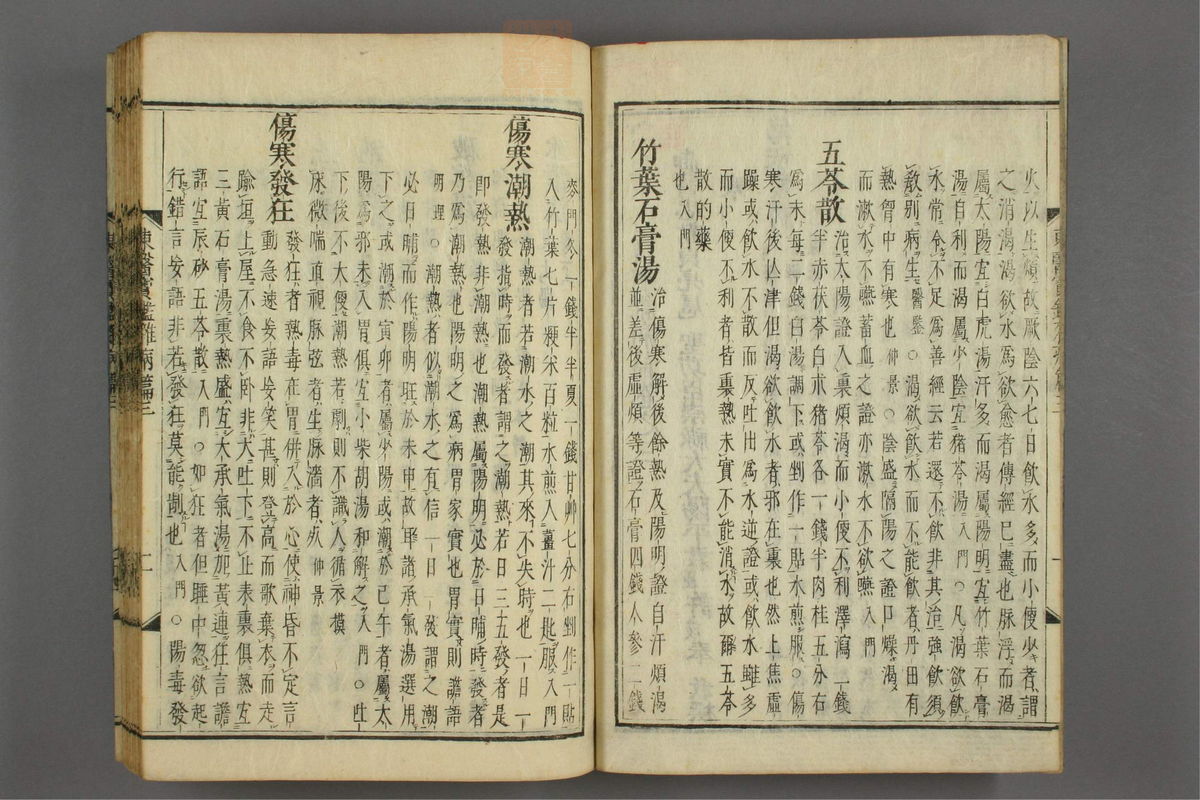 火以生煩故厥陰六七日飮水多而小便少者謂
之消渴渴欲水爲欲愈者傳經已盡也脉浮而渴
屬太陽宜白虎湯汗多而渴屬陽明宜竹葉石膏
湯自利而渴屬少陰宜猪苓湯入門○凡渴欲飮
水常令不足爲善經云若還不飮非其治強飮須
敎別病生醫鑒○渴欲飮水而不能飮者丹田有
熱胷中有寒也仲景○陰盛隔陽之證口燥渴
而漱水不嚥蓄血之證亦漱水不欲嚥入門
五苓散
治太陽證入裏煩渴而小便不利澤瀉一錢
半赤茯苓白朮猪苓各一錢半肉桂五分右
爲末每二錢白湯調下或剉作一貼水煎服○傷
寒汗後亡津但渴欲飮水者邪在裏也然上焦虛
躁或飮水不散而反吐出爲水逆證或飮水雖多
而小便不利者皆裏熱未實不能消水故爾五苓
散的藥
也入門
竹葉石膏湯
治傷寒解後餘熱及陽明證自汗煩渴
並差後虛煩等證石膏四錢人參二錢
麥門冬一錢半半夏一錢甘艸七分右剉作一貼
入竹葉七片粳米百粒水煎入薑汁二匙服入門
傷寒潮熱
潮熱者若潮水之潮其來不失時也一日一
發指時而發者謂之潮熱若日三五發者是
即發熱非潮熱也潮熱屬陽明必於日晡時發者
乃爲潮熱也陽明之爲病胃家實也胃實則譫語
明理○潮熱者似潮水之有信一日一發謂之潮
必日晡而作陽明旺於未申故耶諸承氣湯選用
下之或潮於寅卯者屬少陽或潮於巳午者屬太
陽爲邪未入胃俱宜小柴胡湯和解之入門○吐
下後不大便潮熱若劇則不識人循衣摸
床微喘直視脉弦者生脉濇者死仲景
傷寒發狂
發狂者熱毒在胃併入於心使神昏不定言
動急速妄語妄笑甚則登高而歌棄衣而走
踰垣上屋不食不臥非大吐下不止表裏俱熱宜
三黃石膏湯裏熱盛宜大承氣湯加黃連狂言譫
語宜辰砂五苓散入門○如狂者但睡中忽欲起
行錯言妄語非若發狂莫能制也入門○陽毒發